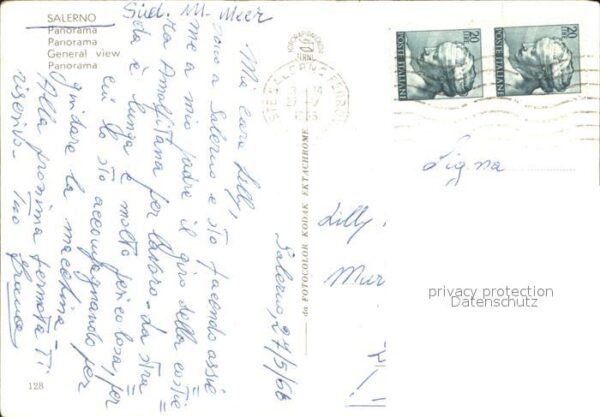 SALERNO
Panorama
Panorama
General view
Panorama
Süd. M-Meer
Mia cara Lilly,
sono a Salerno e sto facendo assie
me a mio padre il giro della costie
ra Amalfitana per lavoro. La stra
da è lunga e molto pericolosa, per
cui lo sto accompagnando per
guidare la macchina.
Alla prossima fermata Ti
riscrivo. Tuo
Franco
Salerno, 27/5/66
da FOTOCOLOR KODAK EKTACHROME
128
SALERNO FERROVIA
20
POSTE ITALIANE
20
POSTE ITALIANE
Sig.na
Lilly
Mur
privacy protection
Datenschutz